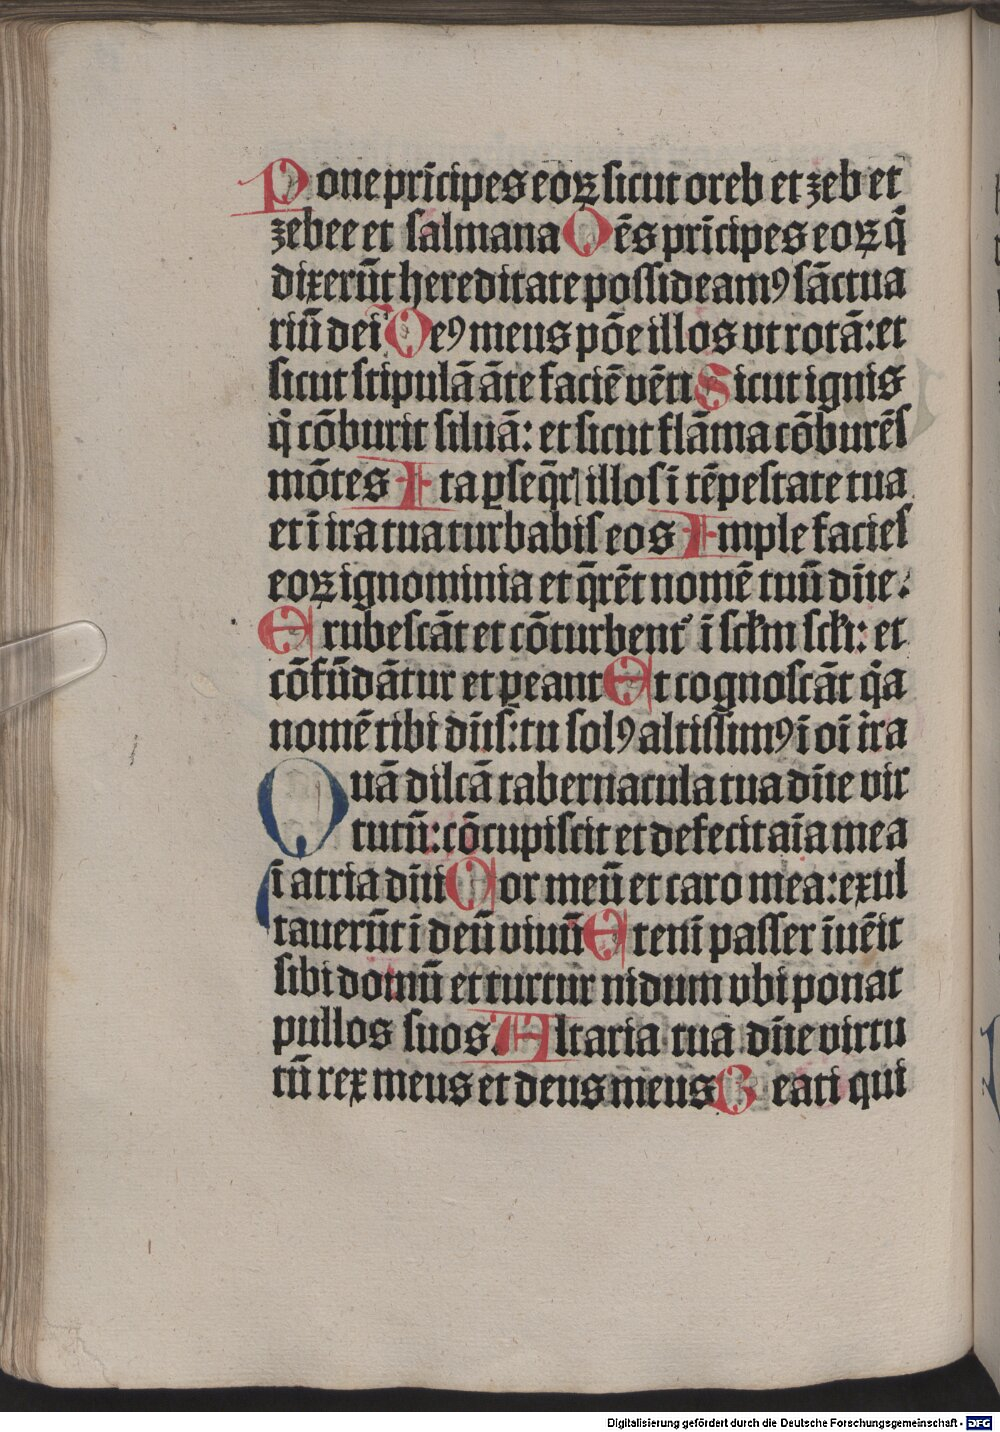 Pone prīcipes eoꝝ sicut oreb et zeb et
zebee et salmana Oēs prīcipes eoꝝ q̄
dixerūt hereditate possideamꝰ sāctua
riū dei Deꝰ meus pōe illos vt rotā: et
sicut stipulā āte faciē vēti Sicut ignis
q̄ cōburit siluā: et sicut flāma cōburēs
mōtes Ita ꝑseq̄r illos ī tēpestate tua
et ī ira tua turbabis eos Imple facies
eoꝝ ignominia et q̄rēt nomē tuū dn̄e.
Erubescāt et cōturbent᷑ ī sclm̄ scl̄i: et
cōfūdātur et ꝑeant Et cognoscāt q̄a
nomē tibi dn̄s: tu solꝰ altissimꝰ ī oī t̄ra
Quā dilcā tabernacula tua dn̄e vir
tutū: cōcupiscit et defecit aīa mea
ī atria dn̄i Cor meū et caro mea: exul
tauerūt ī deū viuū Eteni passer īuēit
sibi domū et turtur nidum vbi ponat
pullos suos. Altaria tua dn̄e virtu
tū rex meus et deus meus Beati qui
Digitalisierung gefördert durch die Deutsche Forschungsgemeinschaft - DFG